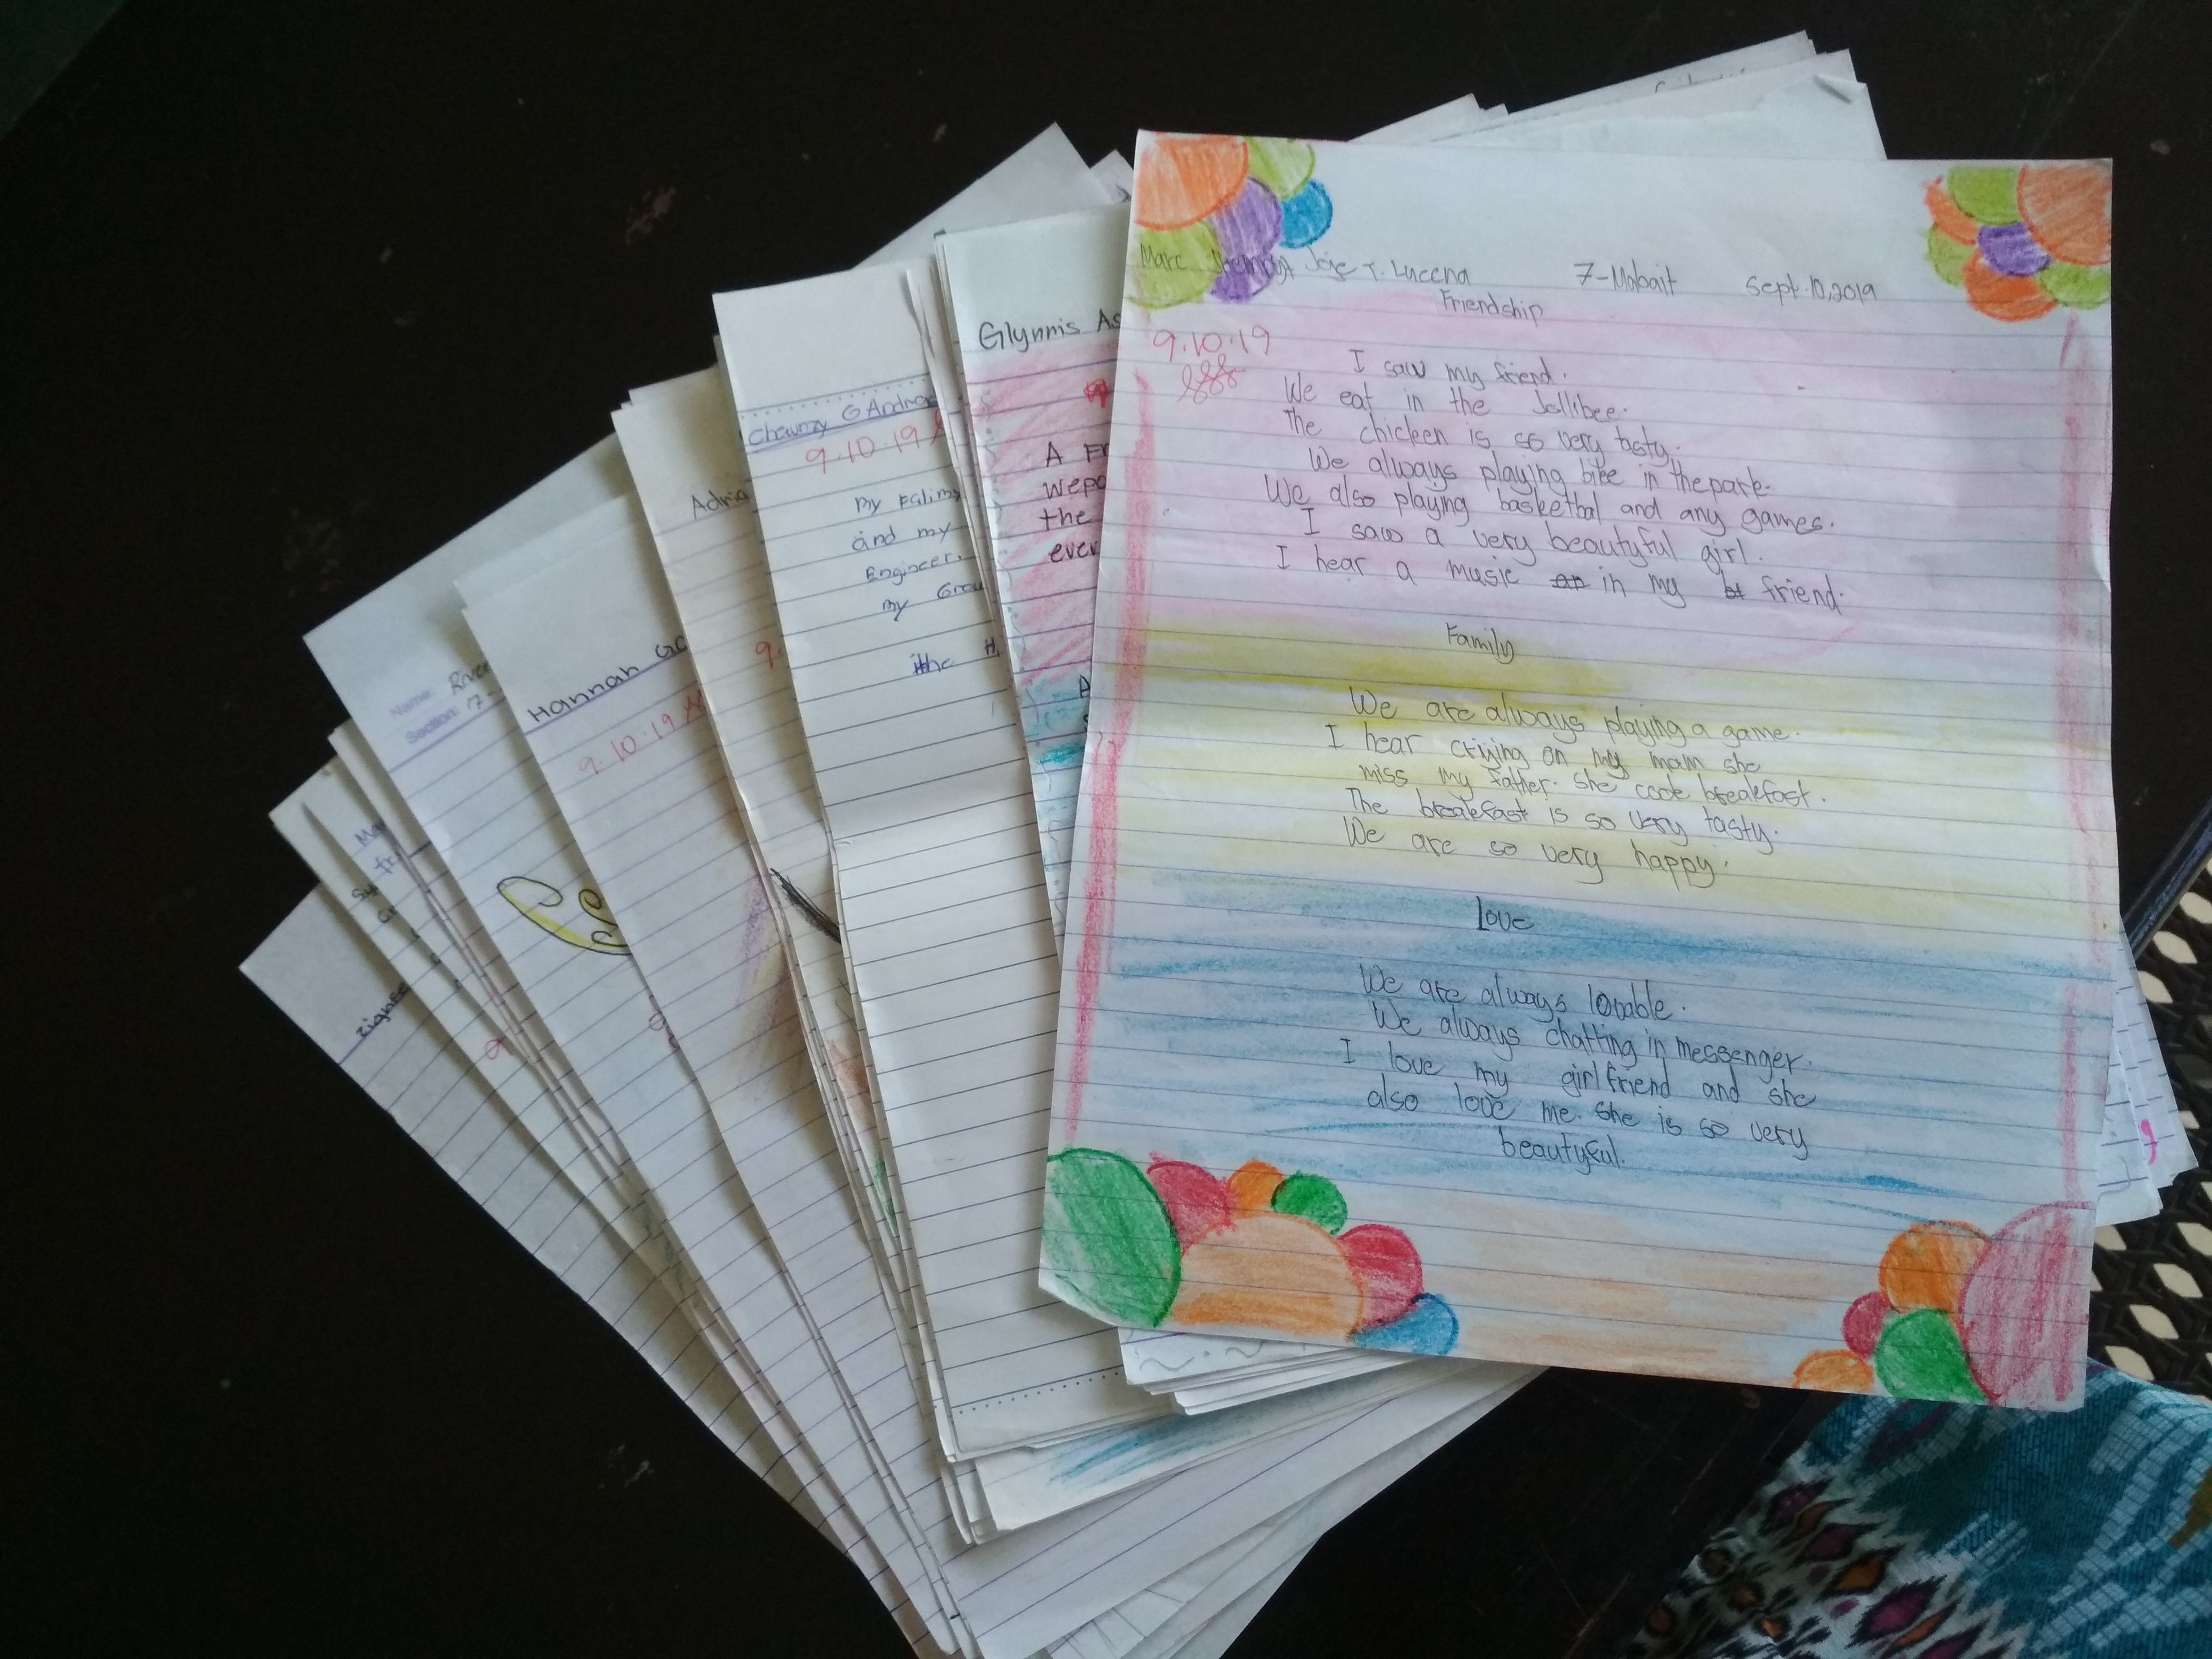 Marc Jose T. Lucena 7-Mabait Sept. 10, 2019
Friendship
9.10.19
I saw my friend.
We eat in the Jollibee.
The chicken is so very tasty.
We always playing bike in the park.
We also playing basketbal and any games.
I saw a very beautyful girl.
I hear a music in my friend.
Family
We are always playing a game.
I hear criying on my mom she
miss my father. She cook breakfast.
The breakfast is so very tasty.
We are so very happy.
Love
We are always lovable.
We always chatting in messenger.
I love my girlfriend and she
also love me. She is so very
beautyful.
Glynnis As
A Fr
wepa
the
ever
A
Chaunzy G Andra
9.10.19
my Falimy
and my
Engineer.
my Grou
the H
Adria
9.
Hannah Gc
9.10.19
Name: River
Section: 7-
Ma